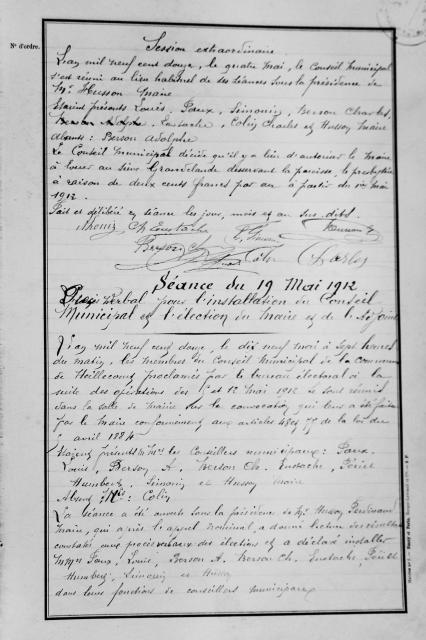 N° d'ordre.
Session extraordinaire
L'an mil neuf cent douze, le quatre mai, le Conseil Municipal
s'est réuni au lieu habituel de ses séances sous la présidence de
Mr Husson Maire
Etaient présents Louis, Faux, Simonin, Berson Charles,
Berson Adolphe, Eustache, Colin Charles et Husson Maire
absents : Berson Adolphe
Le Conseil Municipal décide qu'il y a lieu d'autoriser le Maire
à louer au sieur desservant la paroisse, le presbytère
à raison de deux cents francs par an à partir du 1er mai
1912.
Fait et délibéré en séance les jour, mois et an sus-dits.
Eustache
Berson
Colin Charles
Séance du 19 Mai 1912
Procès Verbal pour l'installation du Conseil
Municipal et l'élection du Maire et de l'Adjoint
L'an mil neuf cent douze, le dix neuf mai à sept heures
du matin, les membres du Conseil Municipal de la Commune
de proclamés par le bureau électoral à la
suite des opérations des 5 et 12 Mai 1912 se sont réunis
dans la salle de Mairie sur la convocation qui leur a été faite
par le Maire conformément aux articles 48 et 77 de la loi du
5 avril 1884
Etaient présents Mrs les Conseillers municipaux : Faux
Louis, Berson A, Berson Ch. Eustache,
Humbert, Simonin et Husson Maire
Absent : Mr : Colin
La séance a été ouverte sous la présidence de Mr Husson Ferdinand
Maire, qui après l'appel nominal, a donné lecture des résultats
constatés aux procès verbaux des élections et a déclaré installer
Faux, Louis, Berson A. Berson Ch. Eustache,
Humbert, Simonin et Husson
dans leurs fonctions de conseillers municipaux